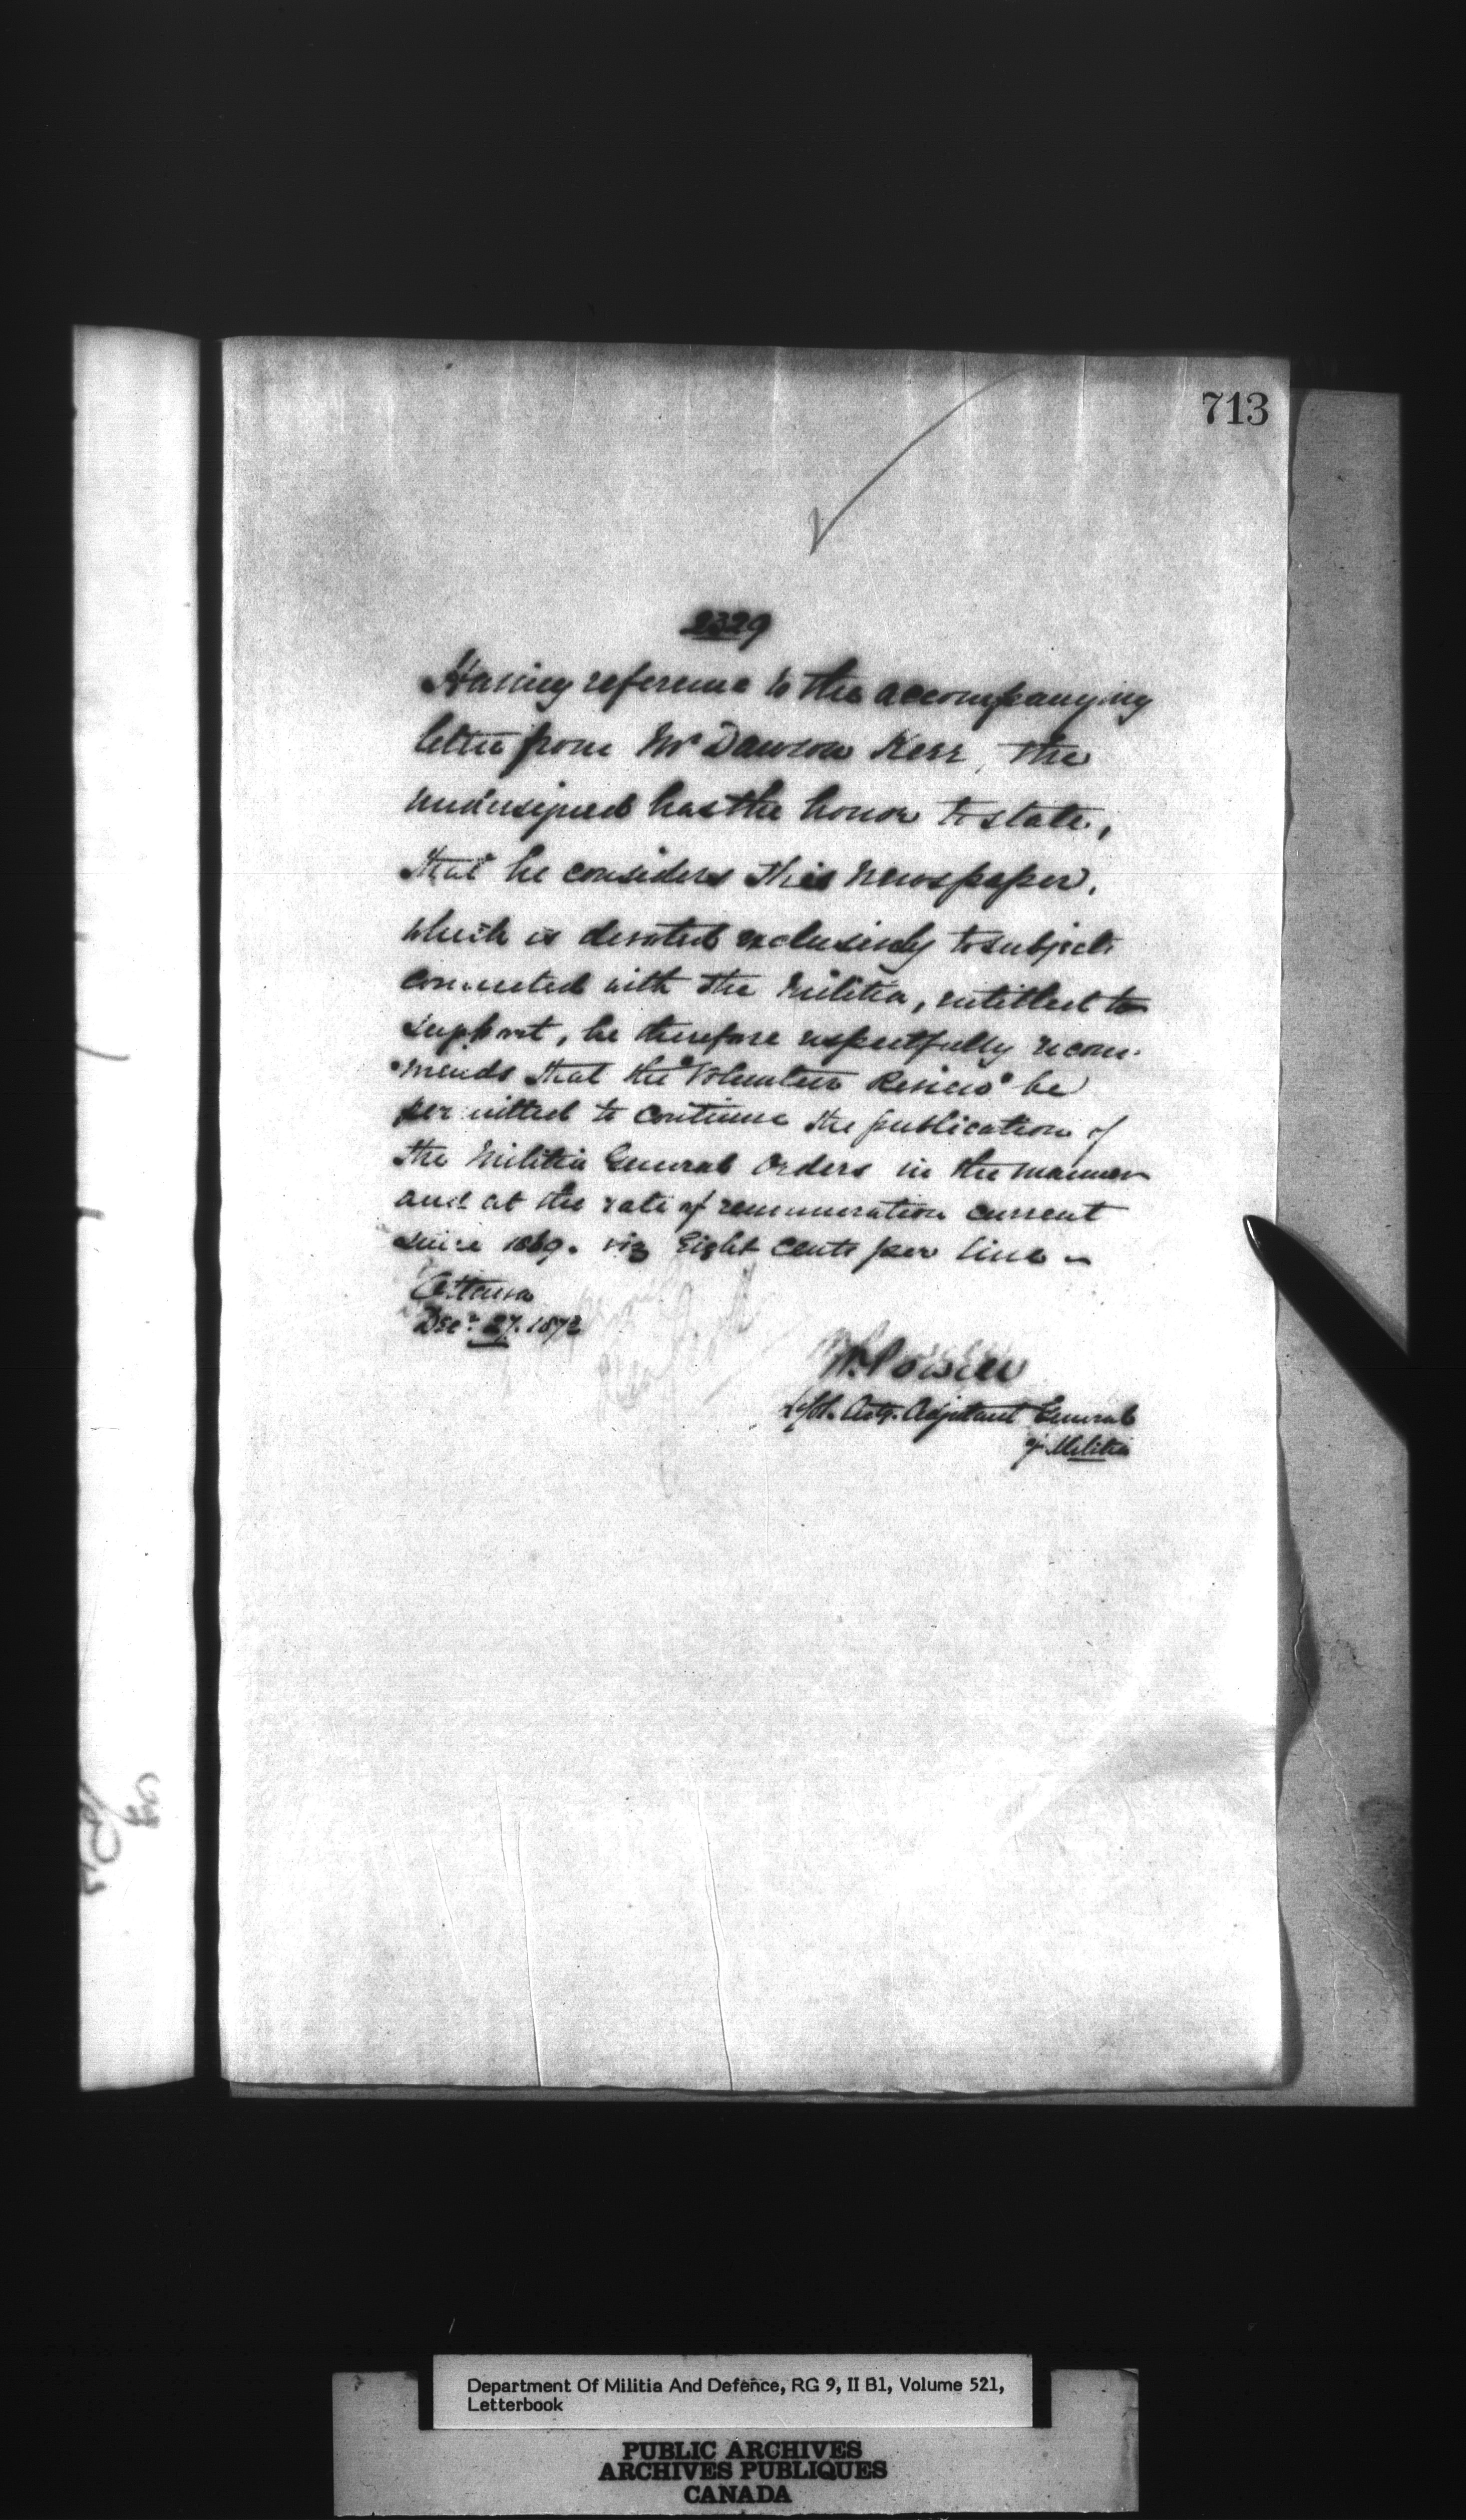 713
2329
Having reference to the accompanying
letter from Mr Dawson Kerr, the
undersigned has the honor to state,
that he considers this newspaper,
which is devoted exclusively to subjects
connected with the Militia, entitled to
support, he therefore respectfully recom-
mends that the "Volunteer Review" be
permitted to continue the publication of
the Militia General Orders in the manner
and at the rate of remuneration current
since 1869. viz Eight cents per line -
Ottawa
Decr. 27. 1872
W. Powell
Actg. Adjutant General
of Militia
Department Of Militia And Defence, RG 9, II B1, Volume 521,
Letterbook
PUBLIC ARCHIVES
ARCHIVES PUBLIQUES
CANADA